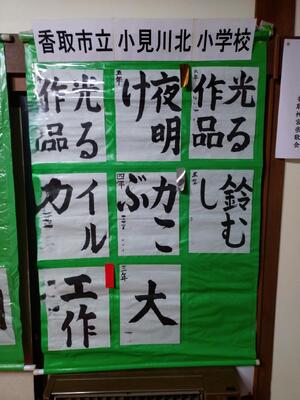 香取市立 小見川北 小学校
光る
作品
夜明
け
五年
光る
作品
鈴む
し
力こ
ぶ
四年
イル
カ
大
工作